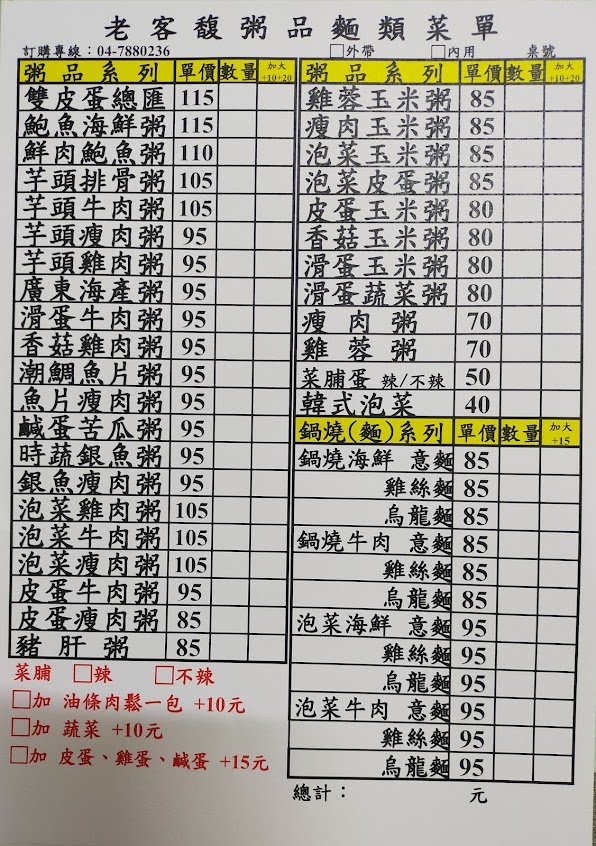 老客馥粥品麵類菜單
訂購專線：04-7880236 □外帶 □內用 桌號
粥品系列 單價 數量 加大+10+20
雙皮蛋總匯 115
鮑魚海鮮粥 115
鮮肉鮑魚粥 110
芋頭排骨粥 105
芋頭牛肉粥 105
芋頭瘦肉粥 95
芋頭雞肉粥 95
廣東海產粥 95
滑蛋牛肉粥 95
香菇雞肉粥 95
潮鯛魚片粥 95
魚片瘦肉粥 95
鹹蛋苦瓜粥 95
時蔬銀魚粥 95
銀魚瘦肉粥 95
泡菜雞肉粥 105
泡菜牛肉粥 105
泡菜瘦肉粥 105
皮蛋牛肉粥 95
皮蛋瘦肉粥 85
豬肝粥 85
菜脯 □辣 □不辣
□加 油條肉鬆一包 +10元
□加 蔬菜 +10元
□加 皮蛋、雞蛋、鹹蛋 +15元
粥品系列 單價 數量 加大+10+20
雞蓉玉米粥 85
瘦肉玉米粥 85
泡菜玉米粥 85
泡菜皮蛋粥 85
皮蛋玉米粥 80
香菇玉米粥 80
滑蛋玉米粥 80
滑蛋蔬菜粥 80
瘦肉粥 70
雞蓉粥 70
菜脯蛋 辣/不辣 50
韓式泡菜 40
鍋燒(麵)系列 單價 數量 加大+15
鍋燒海鮮 意麵 85
雞絲麵 85
烏龍麵 85
鍋燒牛肉 意麵 85
雞絲麵 85
烏龍麵 85
泡菜海鮮 意麵 95
雞絲麵 95
烏龍麵 95
泡菜牛肉 意麵 95
雞絲麵 95
烏龍麵 95
總計： 元